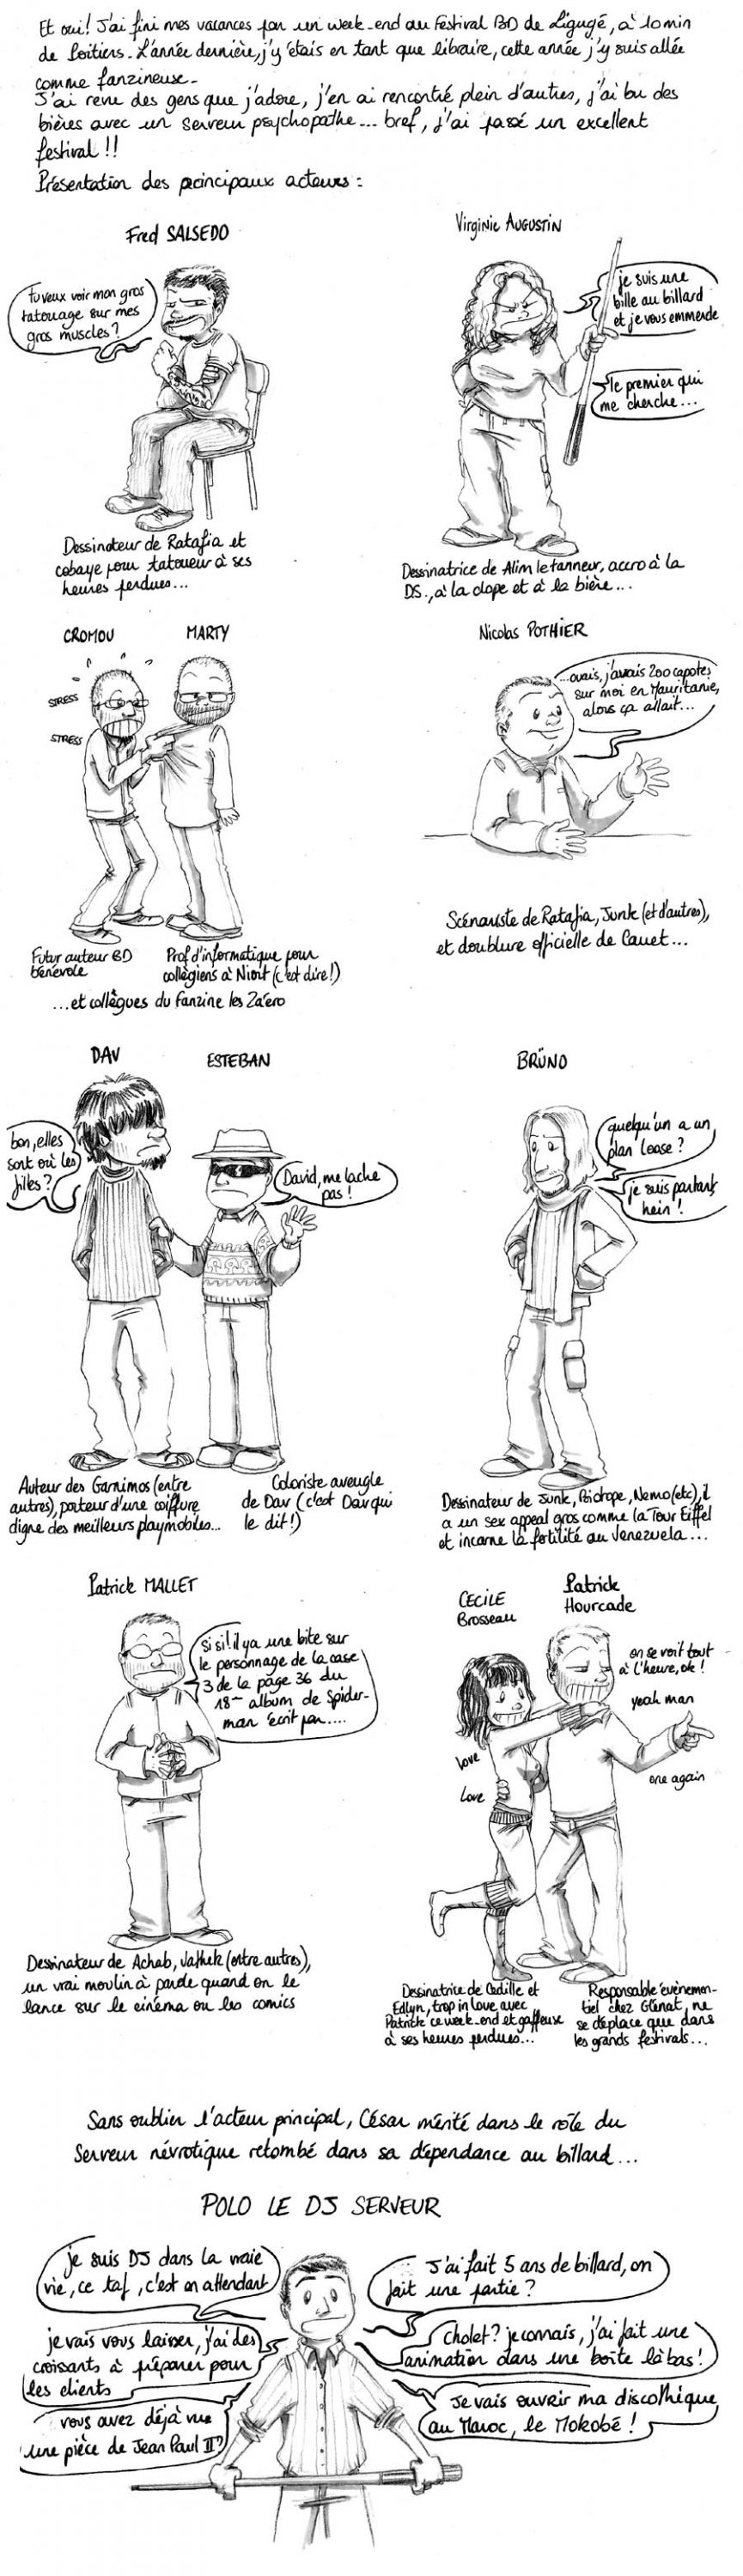 Et oui! J'ai fini mes vacances par un week-end au Festival BD de Ligugé, à 10 min
de Poitiers. L'année dernière, j'y étais en tant que libraire, cette année j'y suis allée
comme fanzineuse.
J'ai revu des gens que j'adore, j'en ai rencontré plein d'autres, j'ai bu des
bières avec un serveur psychopathe... bref, j'ai passé un excellent
festival!!
Présentation des principaux acteurs:
Fred SALSEDO
tu veux voir mon gros
tatouage sur mes
gros muscles?
Dessinateur de Ratafia et
cobaye pour tatoueur à ses
heures perdues...
Virginie AUGUSTIN
je suis une
bille au billard
et je vous emmerde
le premier qui
me cherche...
Dessinatrice de Alim le tanneur, accro à la
DS, à la clope et à la bière...
CROMOU
MARTY
STRESS
STRESS
Futur auteur BD
bénévole
Prof d'informatique pour
collègiens à Niort (c'est dire!)
...et collègues du fanzine les Za'ero
Nicolas POTHIER
...ouais, j'avais 200 capotes
sur moi en Mauritanie,
alors ça allait...
Scénariste de Ratafia, Junk (et d'autres),
et doublure officielle de Cauet...
DAV
ESTEBAN
bon, elles
sont où les
filles?
David, me lache
pas!
Auteur des Garnimos (entre
autres), porteur d'une coiffure
digne des meilleurs playmobiles...
Coloriste aveugle
de Dav (c'est Dav qui
le dit!)
BRÜNO
quelqu'un a un
plan loose?
je suis partant
hein!
Dessinateur de Junk, Biotope, Nemo (etc), il
a un sex appeal gros comme la Tour Eiffel
et incarne la fertilité au Venezuela...
Patrick MALLET
Si si! il y a une bite sur
le personnage de la case
3 de la page 36 du
18ème album de Spider-
man écrit par....
Dessinateur de Achab, Vathek (entre autres),
un vrai moulin à parole quand on le
lance sur le cinéma ou les comics
CECILE
Brosseau
Patrick
Hourcade
on se voit tout
à l'heure, ok!
yeah man
one again
love
love
Dessinatrice de Cédille et
Edlyn, trop in love avec
Patrick ce week-end et gaffeuse
à ses heures perdues...
Responsable évènemen-
tiel chez Glénat, ne
se déplace que dans
les grands festivals...
Sans oublier l'acteur principal, César mérité dans le rôle du
Serveur névrotique retombé dans sa dépendance au billard...
POLO LE DJ SERVEUR
je suis DJ dans la vraie
vie, ce taf, c'est en attendant
je vais vous laisser, j'ai des
croissants à préparer pour
les clients
vous avez déjà vu
une pièce de Jean Paul II?
J'ai fait 5 ans de billard, on
fait une partie?
Cholet? je connais, j'ai fait une
animation dans une boîte là bas!
Je vais ouvrir ma discothèque
au Maroc, le Mokobé!